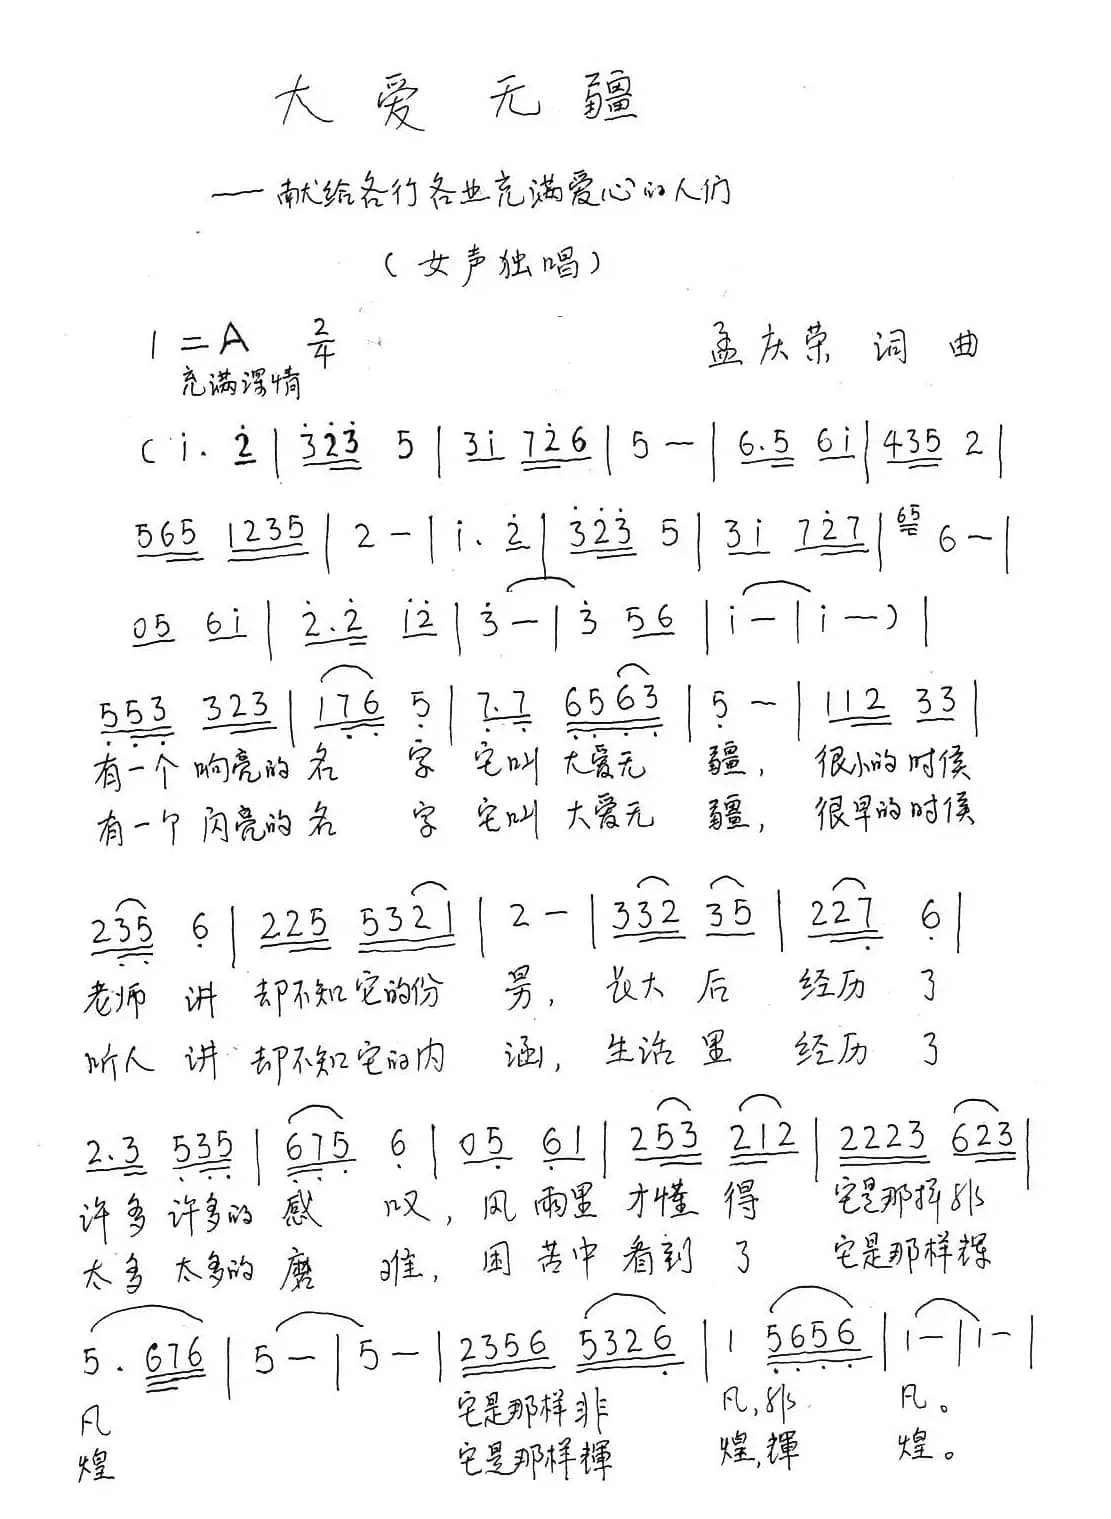 大爱无疆
——献给各行各业充满爱心的人们
（女声独唱）
1=A 2/4 孟庆荣 词 曲
充满深情
( i̇. 2̇ | 3̇2̇3̇ 5 | 3i̇ 72̇6 | 5 — | 6.5 6i̇ | 435 2 |
565 1235 | 2 — | i̇. 2̇ | 3̇2̇3̇ 5 | 3i̇ 72̇7 | 65 6 — |
05 6i̇ | 2̇.2̇ i̇2̇ | 3̇ — | 3̇ 56 | i̇ — | i̇ — ) |
5̣5̣3̣ 323 | 17̣6̣ 5̣ | 7̣.7̣ 6̣5̣6̣3̣ | 5̣ — | 112 33 |
有一个 响亮的 名 字 它叫 大爱无 疆， 很小的 时侯
有一个 闪亮的 名 字 它叫 大爱无 疆， 很早的 时侯
23̣5̣ 6̣ | 225 5321 | 2 — | 332 35 | 227̣ 6̣ |
老师 讲 却不知 它的份 量， 长大 后 经历 了
听人 讲 却不知 它的内 涵， 生活 里 经历 了
2.3 5̣3̣5̣ | 6̣7̣5̣ 6̣ | 05̣ 6̣1 | 253 212 | 2223 623 |
许多 许多的 感 叹， 风 雨里 才懂 得 它是那样 非
太多 太多的 磨 难， 困 苦中 看到 了 它是那样 辉
5. 676 | 5 — | 5 — | 2356 5326̣ | 1 5̣6̣5̣6̣ | 1 — | 1 — |
凡 它是那样 非 凡，非 凡。
煌 它是那样 輝 煌，輝 煌。